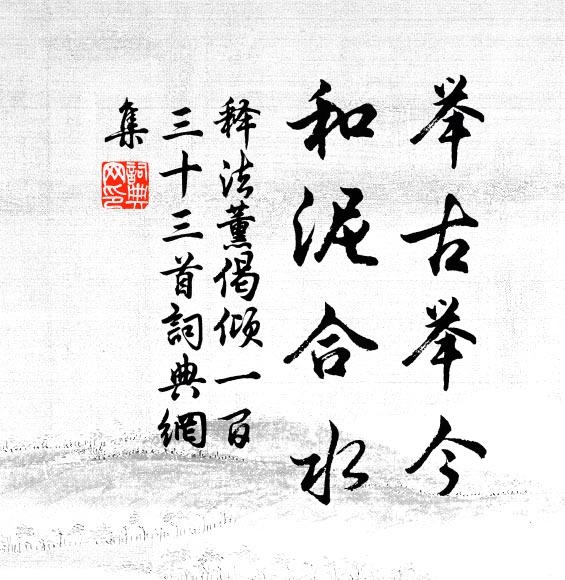 举古举今
和泥合水
释法薰偈倾一百
三十三首詞典網
集
詞典网印